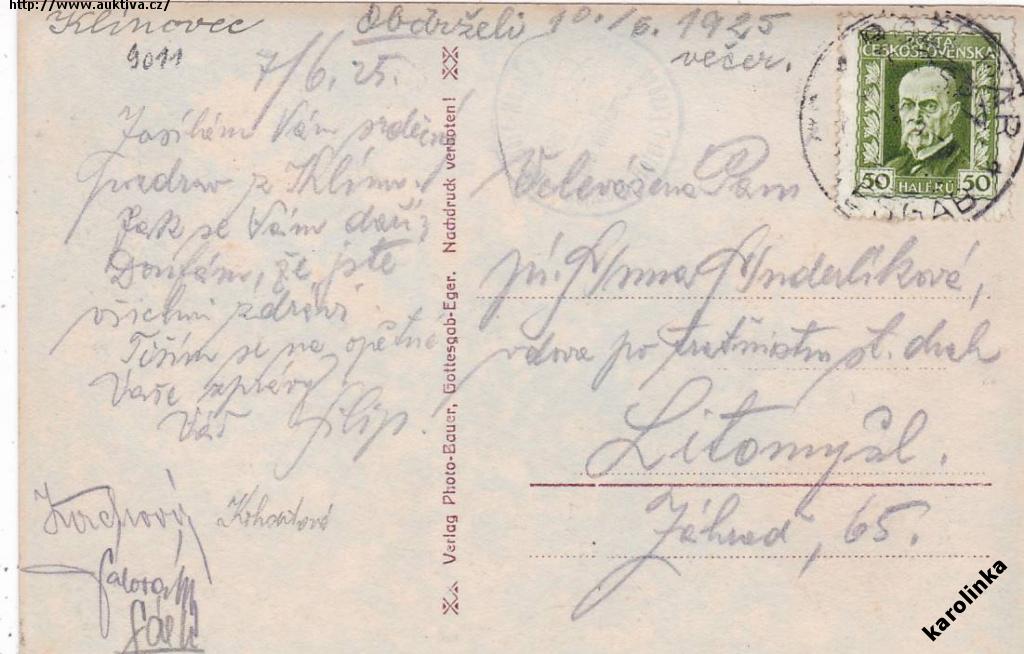 http://www.auktiva.cz/
Klínovec
Obdrželi 10./6. 1925
večer.
9011
7/6. 25.
Zasílám Vám srdečný
pozdrav z Klínov.
Jak se Vám daří?
Doufám, že jste
všichni zdrávi.
Těším se na opětné
Vaše zprávy
Váš Filip.
Kohoutová
Verlag Photo-Bauer, Gottesgab-Eger. Nachdruck verboten!
POŠTA
ČESKOSLOVENSKA
50 HALÉŘŮ 50
Velevážená Paní
pí. Anna Anderlíková,
vdova po traťmistru st. drah
Litomyšl.
Záhrad, 65.
karolinka